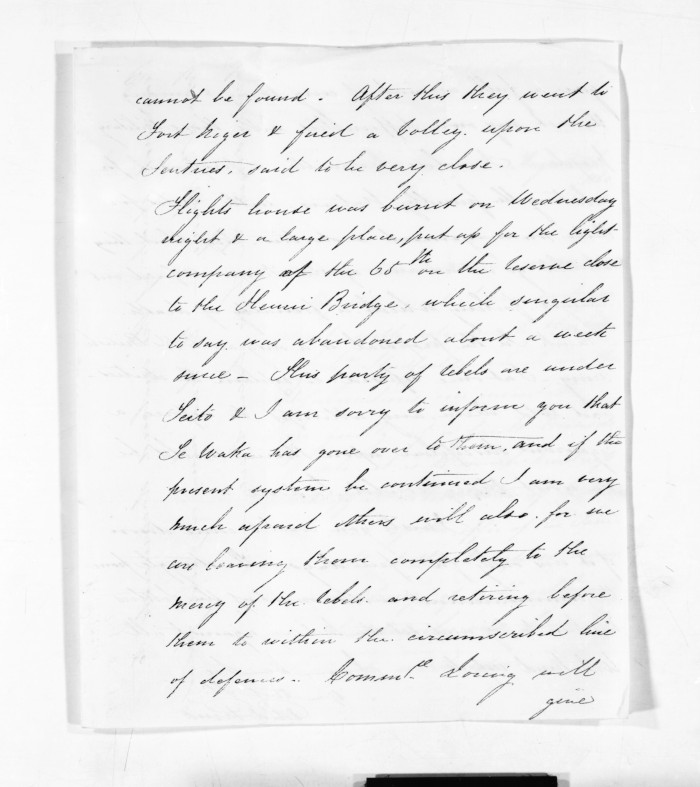 cannot be found. After this they went to
Fort Niger & fired a Volley upon the
Sentries, said to be very close.
Flights house was burnt on Wednesday
night & a large place, put up for the light
company of the 65th on the reserve close
to the Henui Bridge, which singular
to say was abandoned about a week
since - This party of rebels are under
Teito & I am sorry to inform you that
Te Waka has gone over to them, and if the
present system be continued I am very
much afraid others will also. for we
are leaving them completely to the
mercy of the rebels. and retiring before
them to within the circumscribed line
of defence. Loring will
give